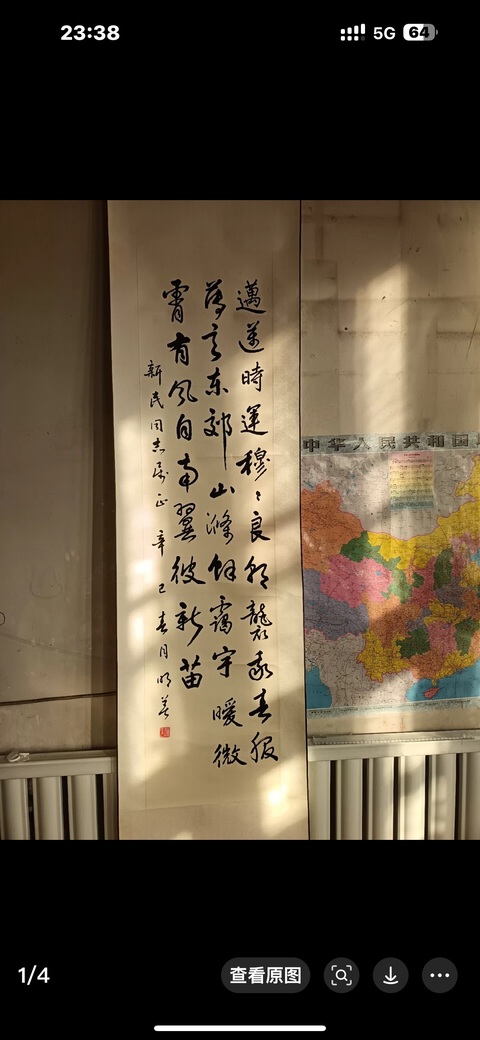 23:38
5G
64
邁邁時運穆〻良朝襲我春服
薄言东郊山滌餘靄宇曖微
霄有风自南翼彼新苗
新民同志属正 辛巳春月明善
中华人民共和国
1/4
查看原图